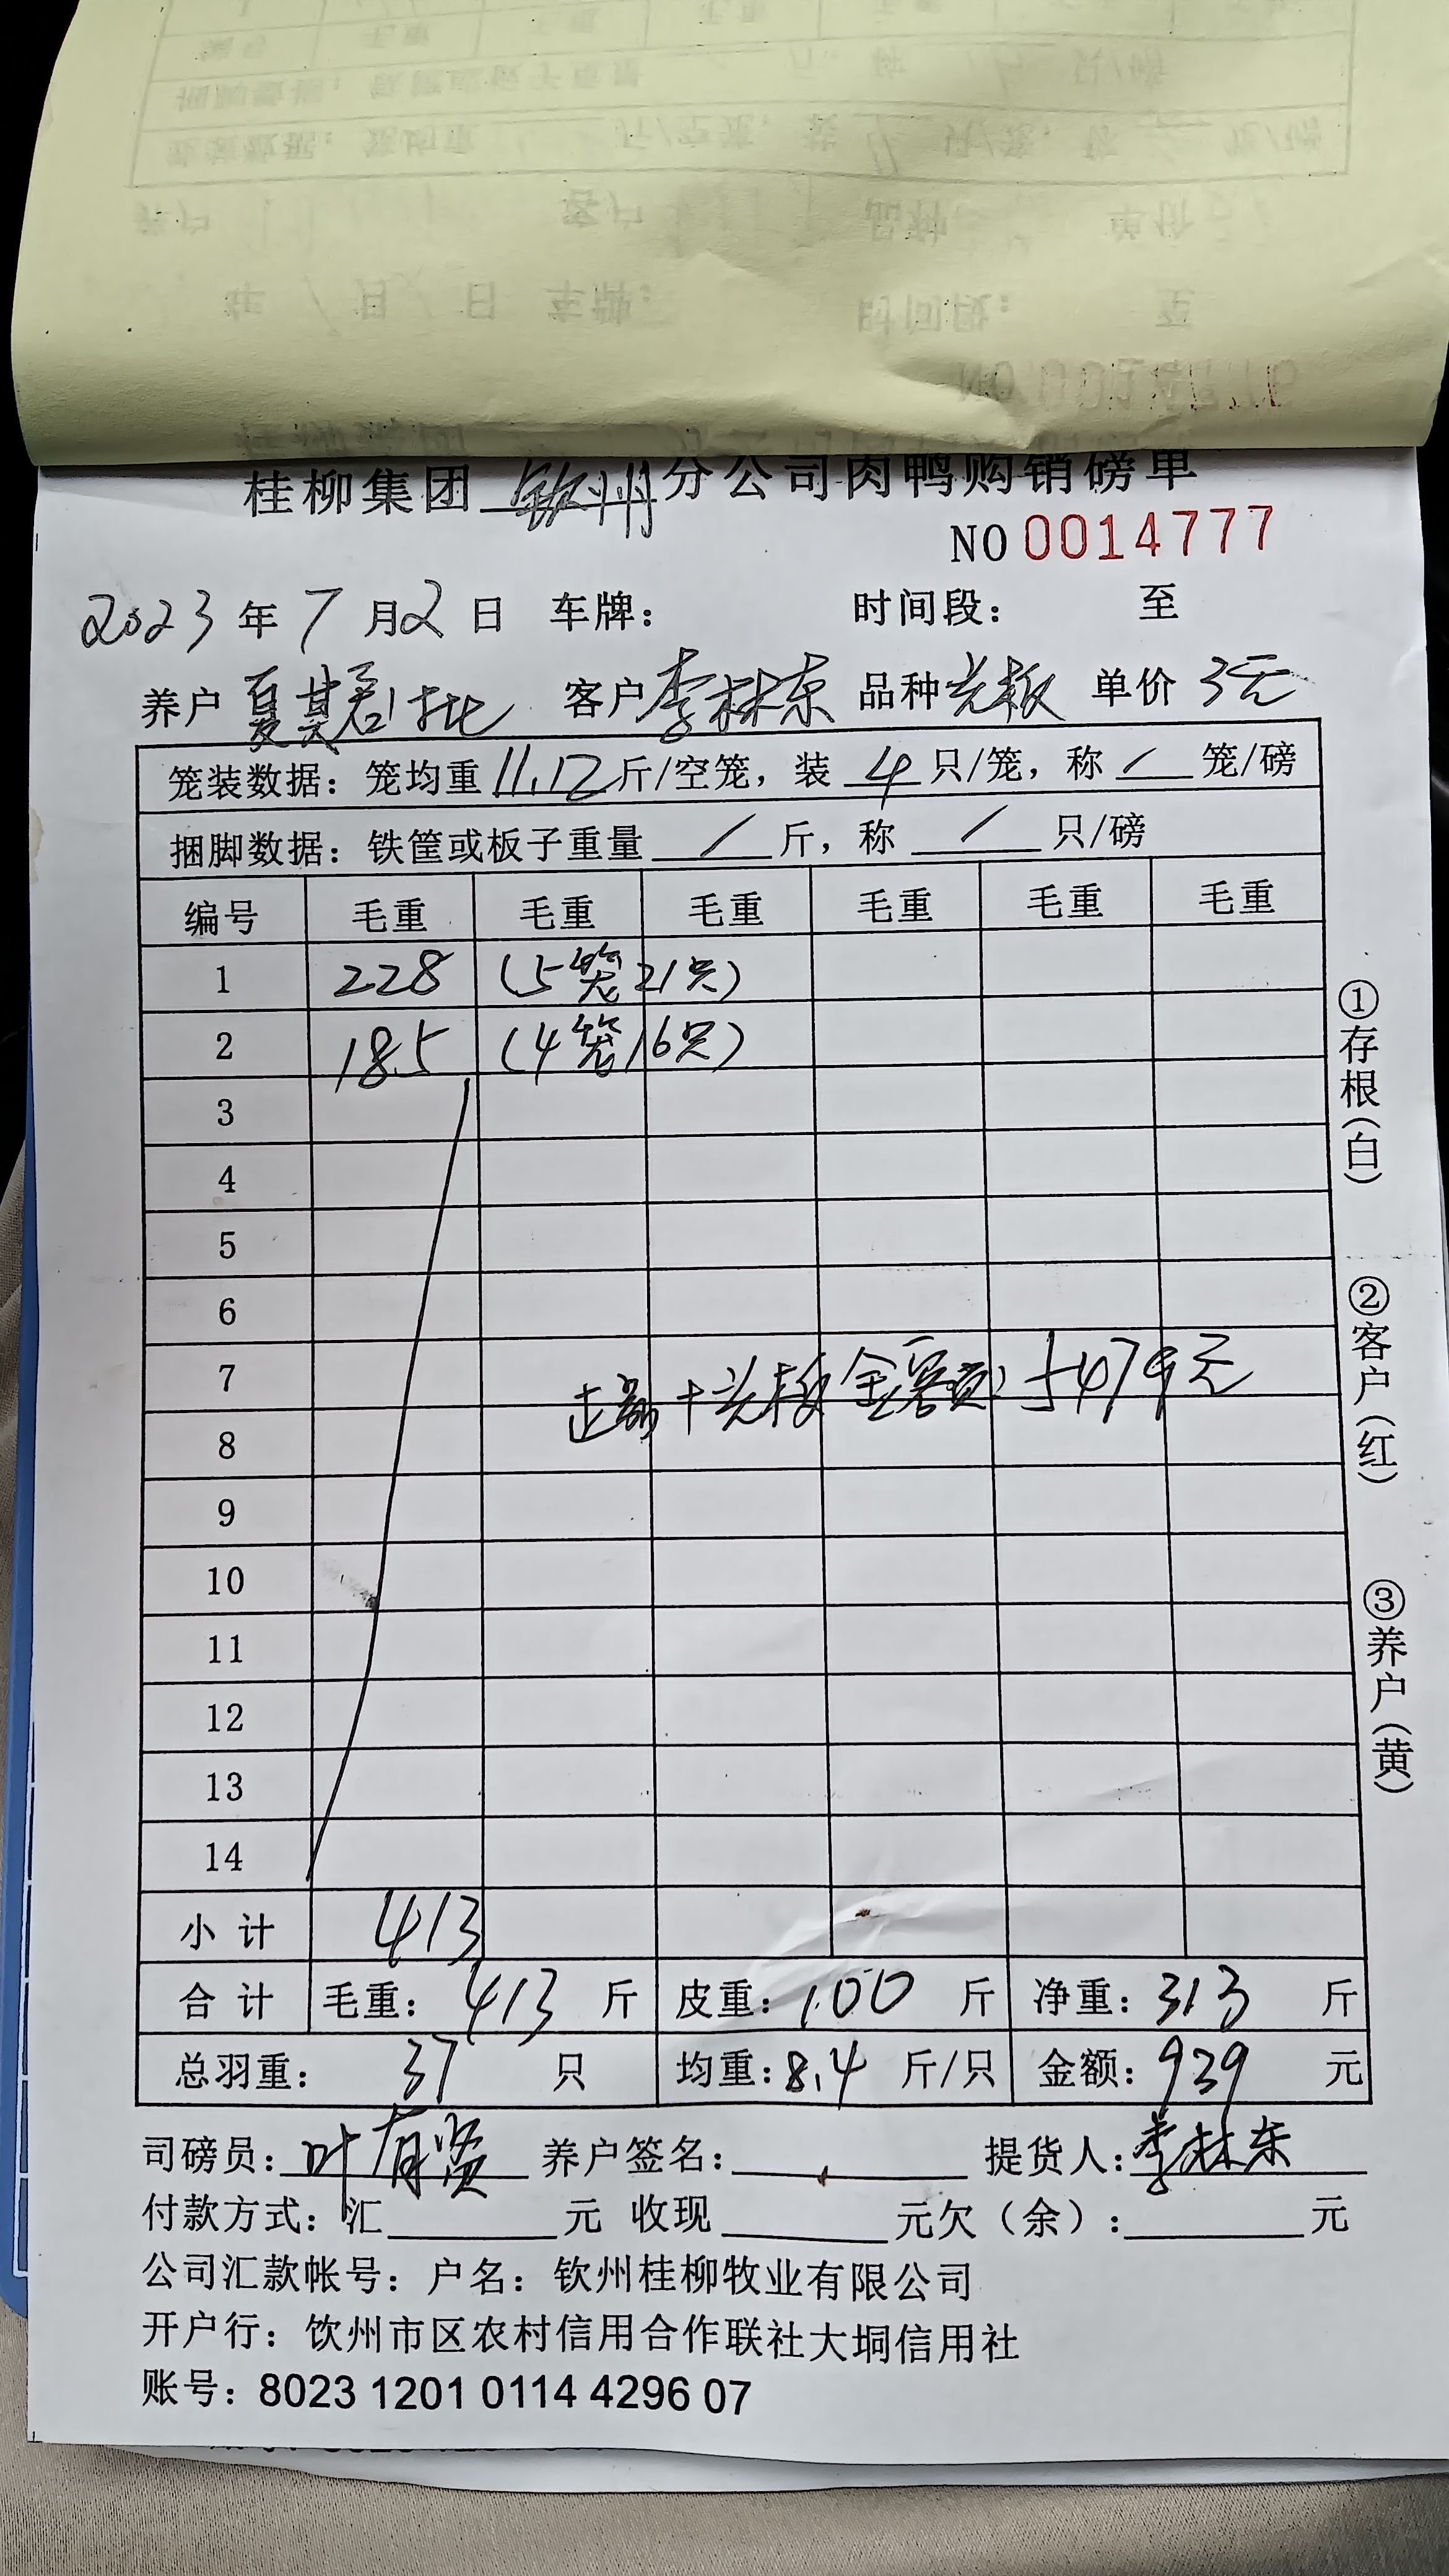 桂柳集团 钦州 分公司肉鸭购销磅单
NO 0014777
2023 年 7 月 2 日 车牌： 时间段： 至
养户 夏其君1批 客户 李林东 品种 光板 单价 3元
笼装数据：笼均重 11.12 斤/空笼，装 4 只/笼，称 / 笼/磅
捆脚数据：铁筐或板子重量 / 斤，称 / 只/磅
编号 毛重 毛重 毛重 毛重 毛重 毛重
1 228 (5笼21只)
2 185 (4笼16只)
3
4
5
6
7
+光板金额：5479元
8
9
10
11
12
13
14
小计 413
合计 毛重：413 斤 皮重：100 斤 净重：313 斤
总羽重：37 只 均重：8.4 斤/只 金额：939 元
司磅员：叶有贤 养户签名： 提货人：李林东
付款方式：汇 元 收现 元欠（余）： 元
公司汇款帐号：户名：钦州桂柳牧业有限公司
开户行：钦州市区农村信用合作联社大垌信用社
账号：8023 1201 0114 4296 07
①存根（白）
②客户（红）
③养户（黄）